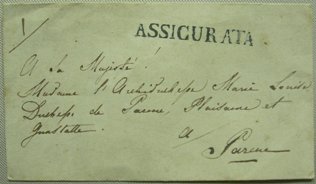 1/
ASSICURATA
A la Majesté!
Madame l'Archiduchesse Marie Louise
Duchesse de Parme, Plaisance et
Guastalle.
à
Parme